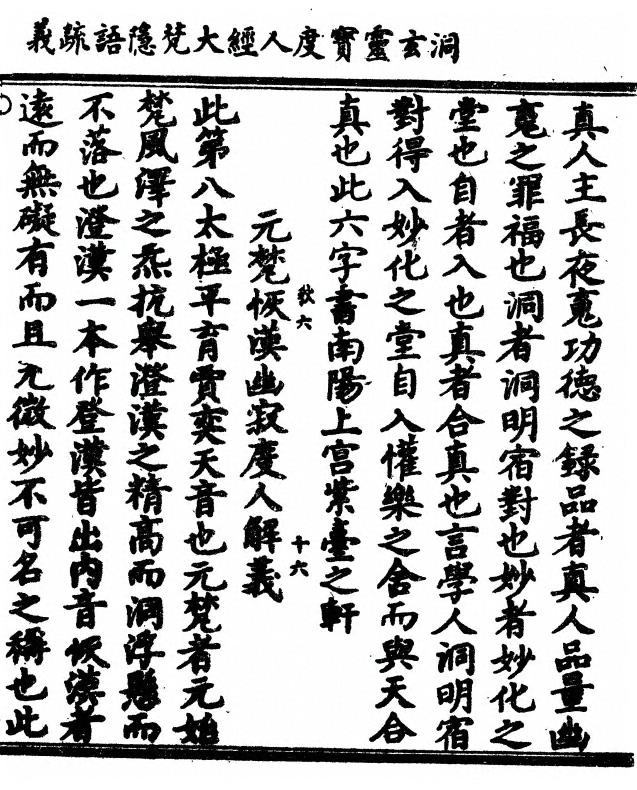 洞玄靈寶度人經大梵隱語疏義
真人主長夜䰟功德之録品者真人品量幽
䰟之罪福也洞者洞明宿對也妙者妙化之
堂也自者入也真者合真也言學人洞明宿
對得入妙化之堂自入懽樂之舍而與天合
真也此六字書南陽上宫紫臺之軒
元梵恢漢幽寂度人解義
狄六
十六
此第八太極平育賈奕天音也元梵者元始
梵風澤之炁抗舉澄漢之精高而洞浮懸而
不落也澄漢一本作登漢皆出内音恢漢者
遠而無礙有而且元微妙不可名之稱也此